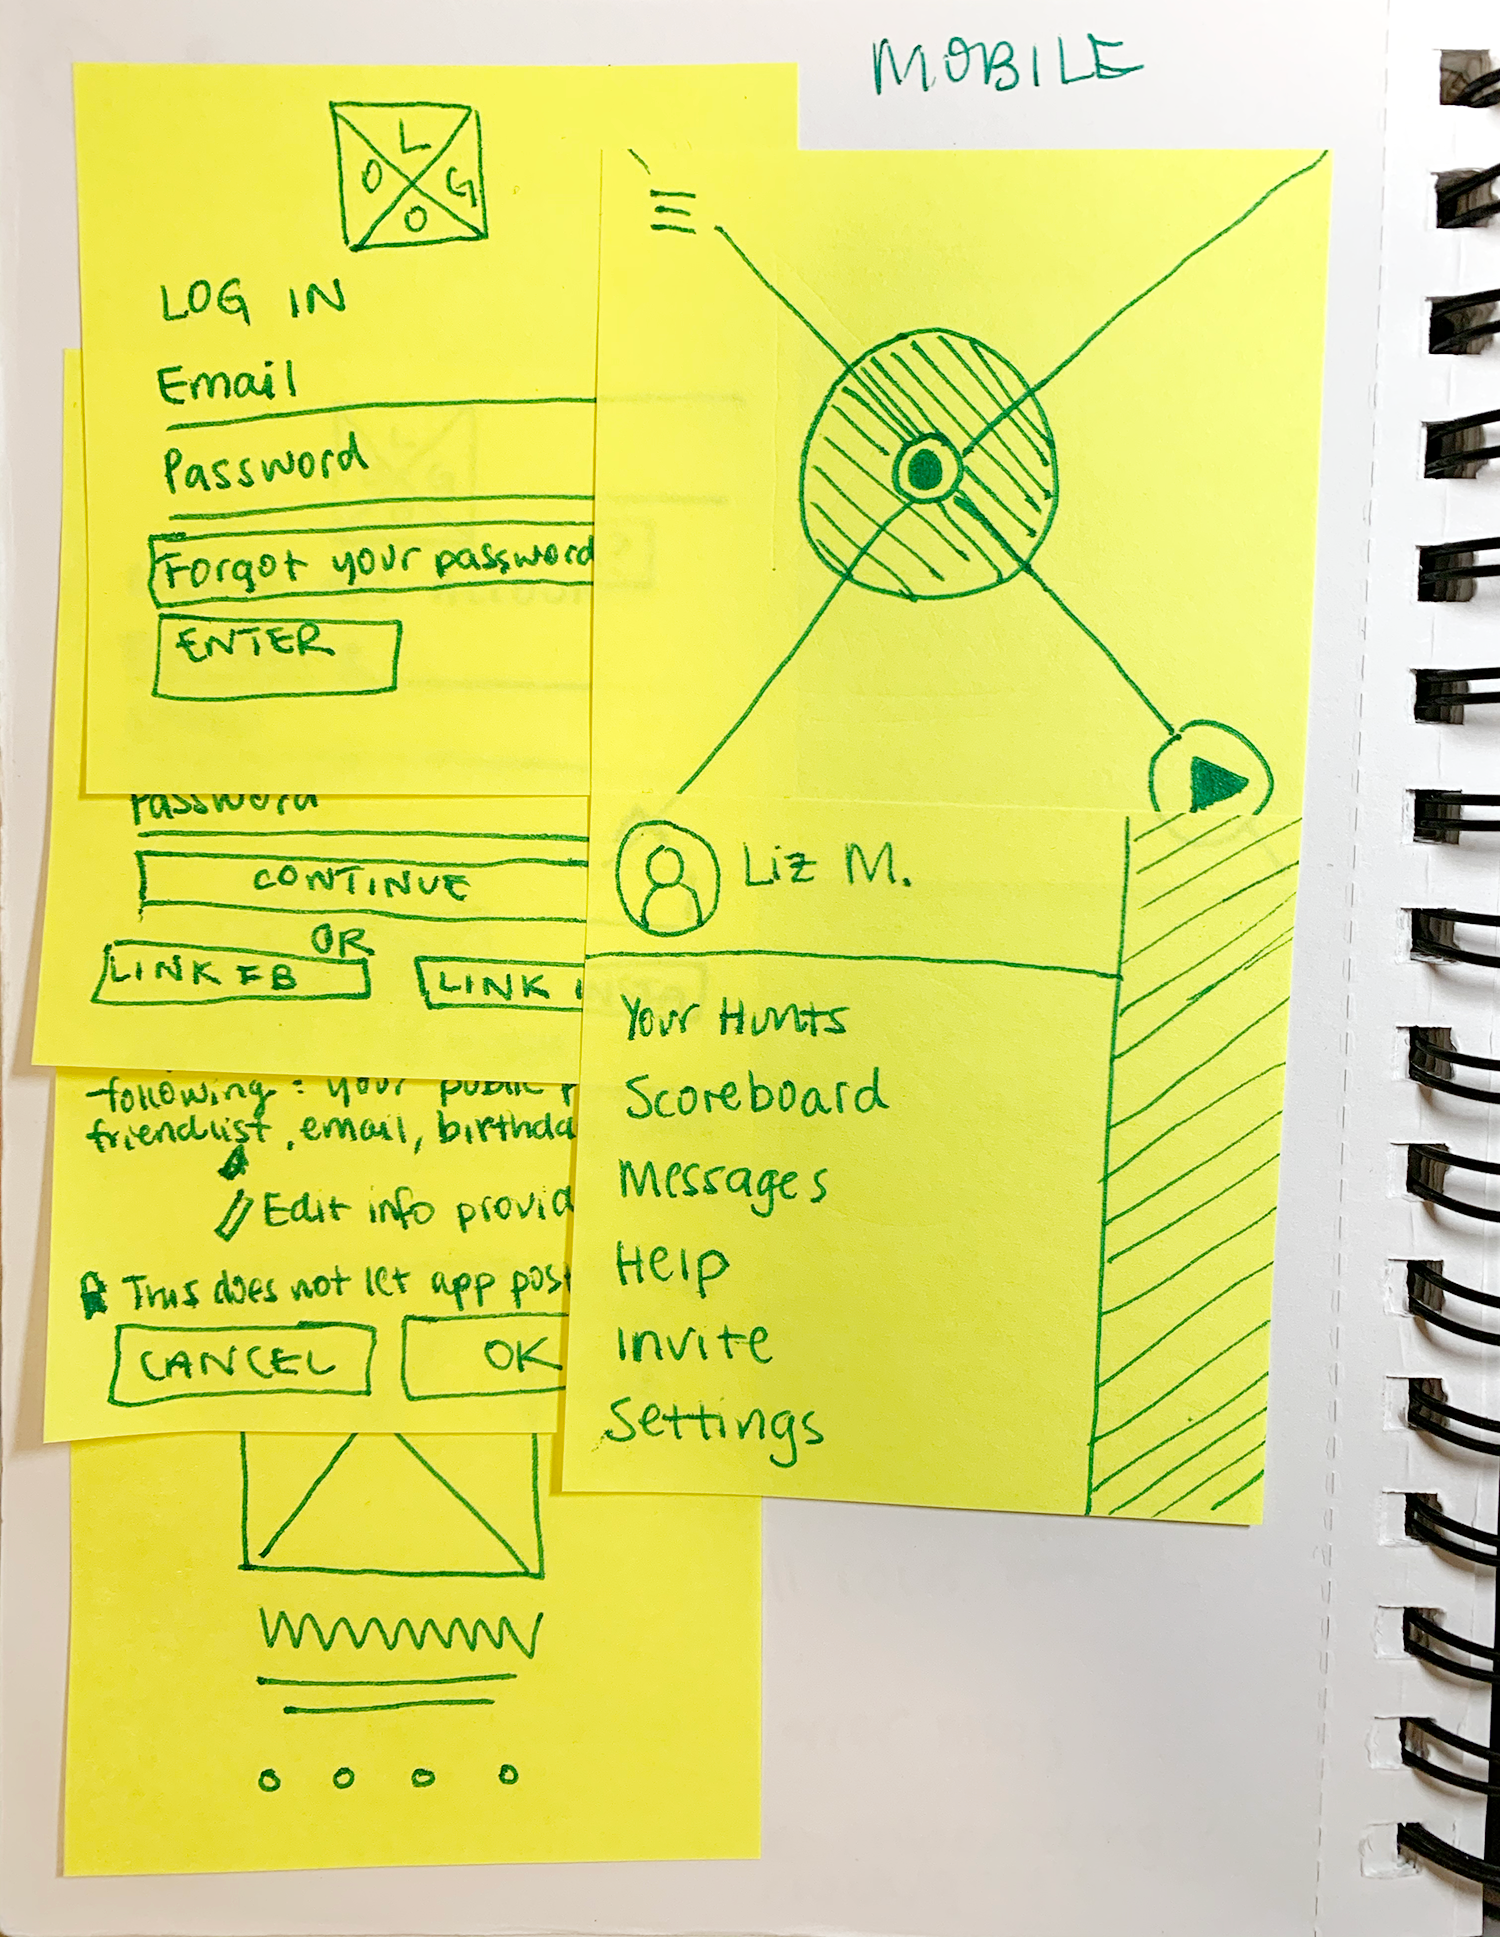 MOBILE
L
O G
O
LOG IN
Email
Password
Forgot your password
ENTER
Password
CONTINUE
OR
LINK FB
LINK
following: your public
friendlist, email, birthda
Edit info provid
This does not let app post
CANCEL
OK
Liz M.
Your Hunts
Scoreboard
Messages
Help
Invite
Settings